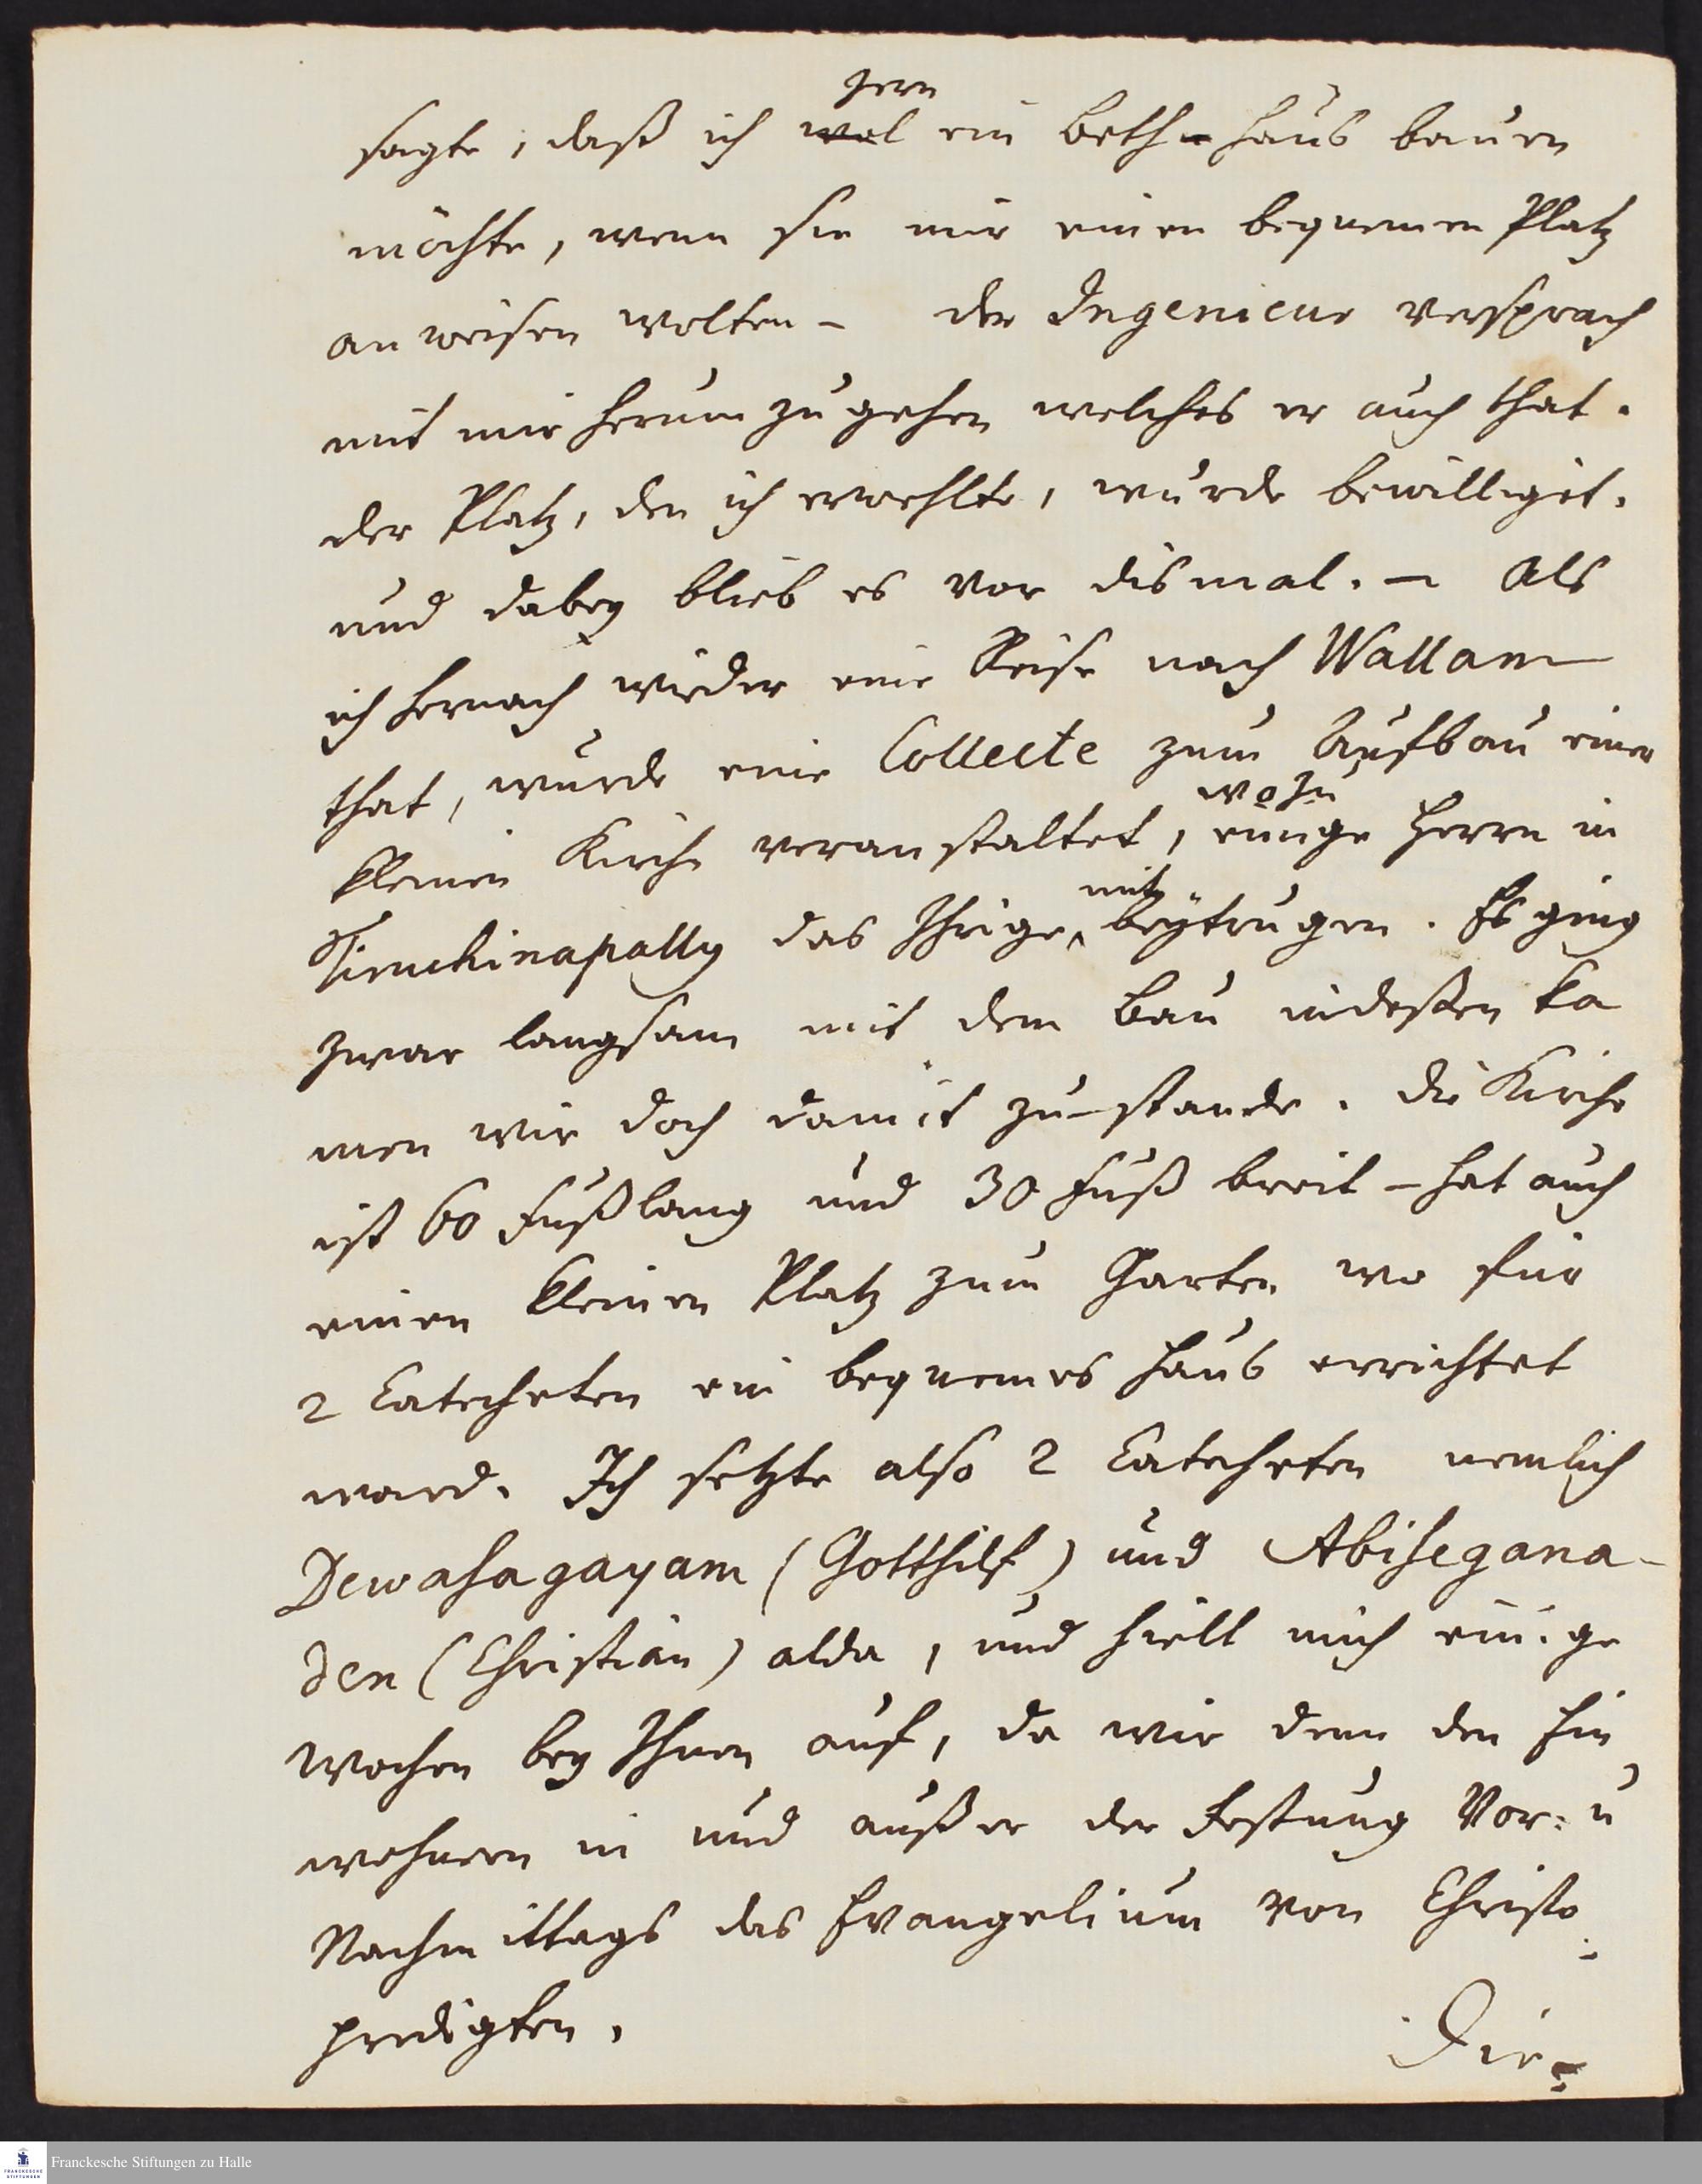 gern
sagte, daß ich wol ein Beth-Haus bauen
möchte, wenn sie mir einen bequemen Platz
anweisen wolten - der Ingenieur versprach
mit mir herum zu gehen welches er auch that.
der Platz, den ich erwehlte, wurde bewilliget.
und dabey blieb es vor dismal. - Als
ich hernach wieder eine Reise nach Wallam
that, wurde eine Collecte zum Aufbau einer
wozu
kleinen Kirche veranstaltet, einige Herrn in
mit
Tiruchinapally das Ihrige beytrugen. Es ging
zwar langsam mit dem Bau indeßen ka
men wir doch damit zu-stande. Die Kirche
ist 60 Fuß lang und 30 Fuß breit - hat auch
einen kleinen Platz zum Garten wo für
2 Catecheten ein bequemes Haus errichtet
ward. Ich setzte also 2 Catecheten nemlich
Dewasagayam (Gotthilf) und Abisegana-
den (Christian) alda, und hielt mich einige
Wochen bey Ihnen auf, da wir denn den Ein
wohnern in und außer der Festung Vor- u
Nachmittags das Evangelium von Christo
predigten.
Die
Franckesche Stiftungen zu Halle
FRANCKESCHE
STIFTUNGEN